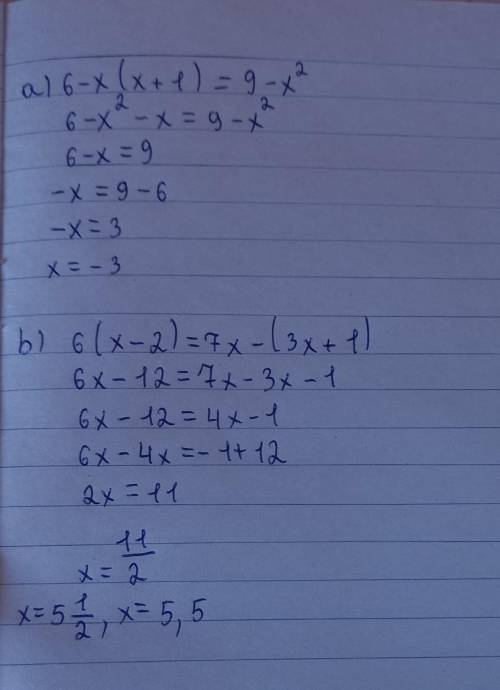 a) 6-x(x+1) = 9-x²
6-x²-x = 9-x²
6-x = 9
-x = 9-6
-x = 3
x = -3
b) 6(x-2) = 7x-(3x+1)
6x-12 = 7x-3x-1
6x-12 = 4x-1
6x-4x = -1+12
2x = 11
x = 11/2
x = 5 1/2, x = 5,5